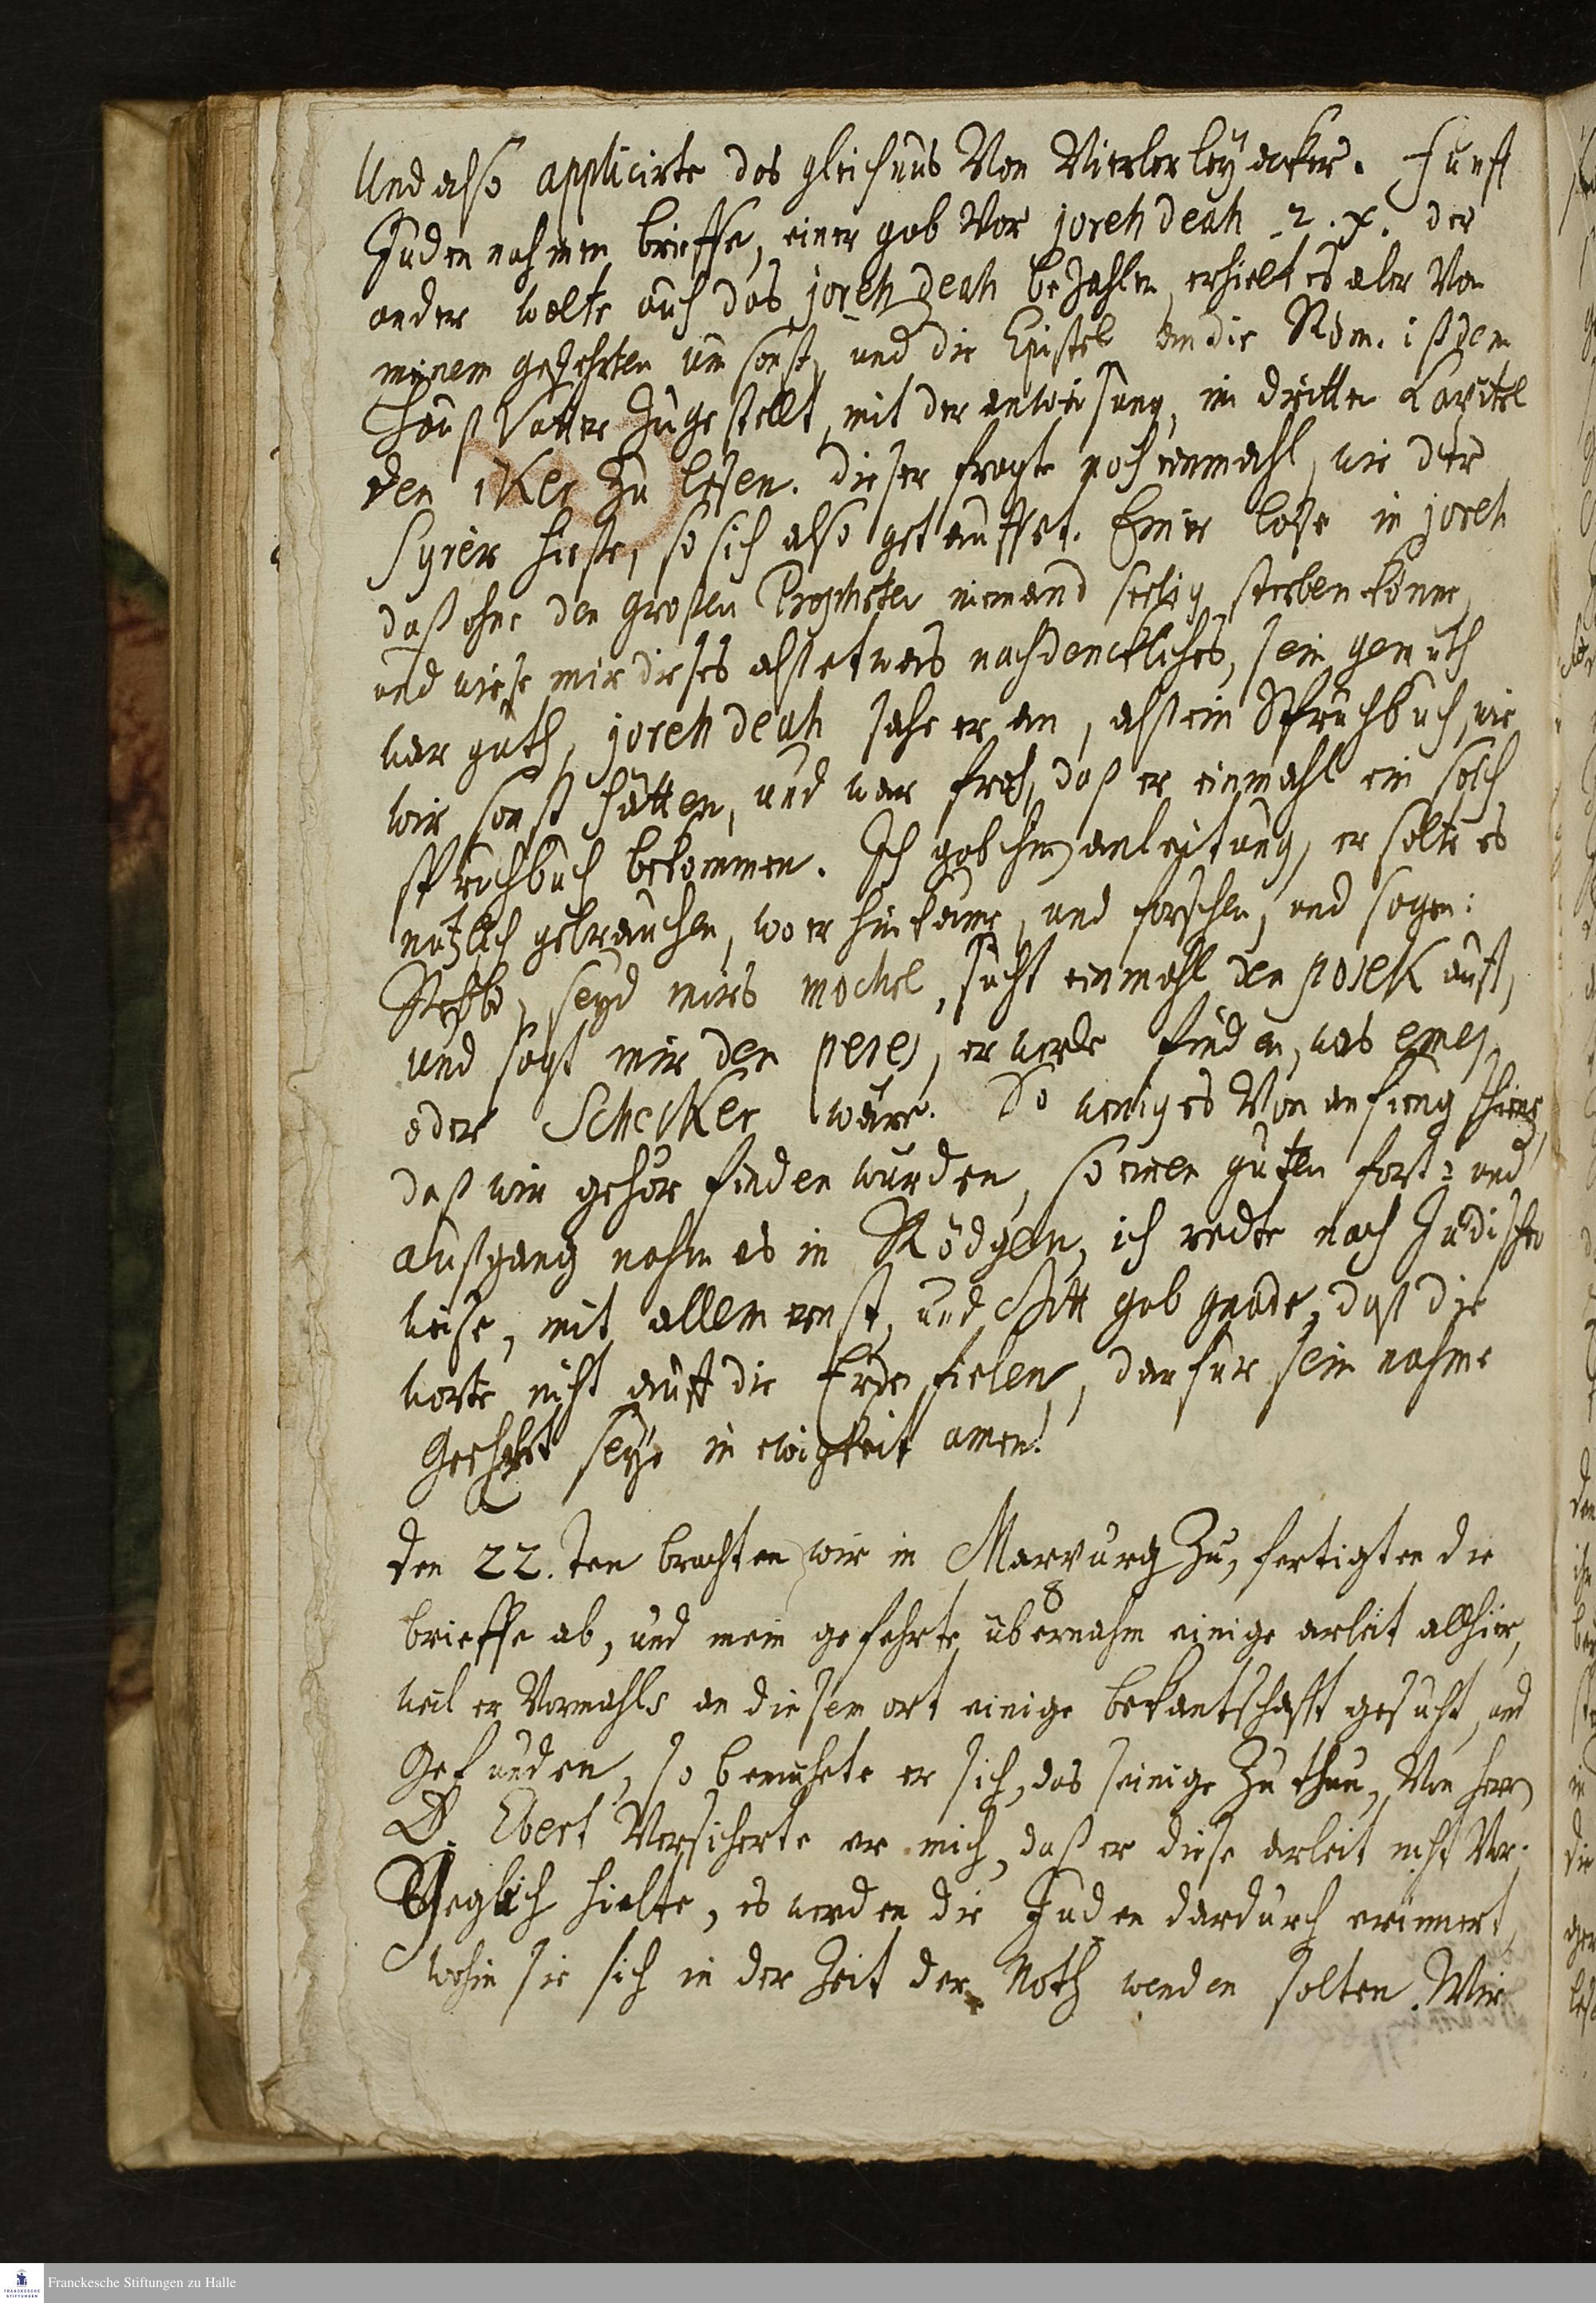 Und also applicirte das gleichnus Von Vierlerley acker. Funff
Juden nahmen brieffe, einer gab Vor joreh deah 2. x. der
ander wolte auch das joreh deah bezahlen, erhielt es aber Von
meinem gefehrten um sonst, und die Epistel an die Röm. ist dem
Hauß Vatter zugestellt, mit der anweisung, im dritten Capitel
den iker zu lesen. dieser fragte noch einmahl, wie der
Syrer hiesse, so sich also getauffet. Einer lase in joreh
daß ohne den Grosen Propheten niemand seelig sterben könne,
und wiese mir dieses alß etwas nachdenckliches, sein gemuth
war guth, joreh deah sahe er an, alß ein Spruchbuch, wie
wir sonst hätten, und war froh, daß er einmahl ein solch
spruchbuch bekommen. Ich gab ihm anleitung, er solte es
nutzlich gebrauchen, wo er hin käme, und forschen, und sagen:
Rebbe, seyd mirs mochel, sucht einmahl den posek auff,
und sagt mir den peres, er werde finden, was emes
oder Schecker wäre. So wenig es Von anfang schiene,
daß wir gehör finden wurden, so einen guten fort- und
außgang nahm es in Rödgen, ich redte nach Judischer
weise, mit allem ernst, und Gott gab gnade, daß die
worte nicht auff die Erde fielen, darfur sein nahme
Geehret seye in ewigkeit amen!
den 22.ten brachten wir in Marburg Zu, fertigten die
brieffe ab, und mein gefehrte übernahm einige arbeit allhier,
weil er Vormahls an diesem ort einige bekantschafft gesucht, und
Gefunden, so bemuhete er sich, das seinige Zu thun, Von herrn
D. Ebert Versicherte er mich, daß er diese arbeit nicht Ver-
Geglich hielte, es werden die Juden dardurch erinnert,
wohin sie sich in der Zeit der Noth wenden solten. Wir
Franckesche Stiftungen zu Halle